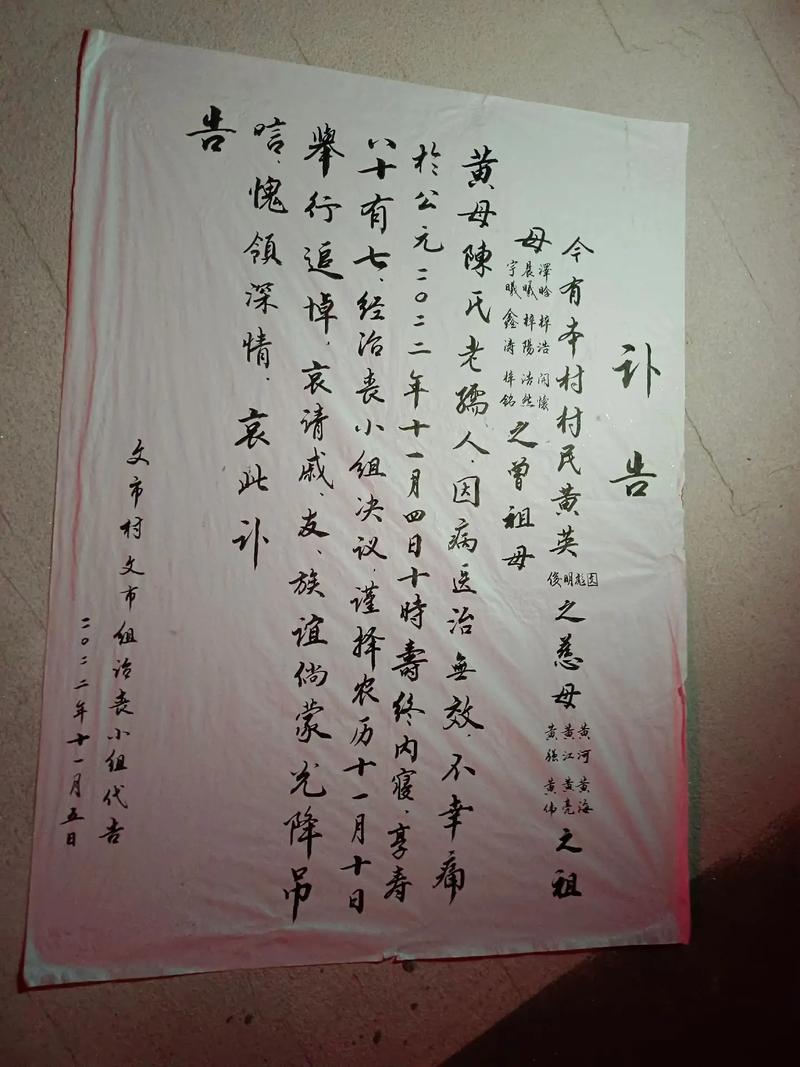 讣告
今有本村村民黄英俊明彪固之慈母黄河黄海黄江黄亮黄强黄伟之祖
母澤晗梓浩晨曦梓陽浩然宇曦鑫濤梓銘之曾祖母
黄母陳氏老孺人、因病医治無效、不幸痛
於公元二〇二二年十一月四日十時壽終内寢、享寿
八十有七、经治丧小组决议、谨择农历十一月十日
舉行追悼、哀请戚、友、族誼倘蒙光降吊
唁、愧領深情、哀此讣
告
文市村文市组治丧小组代告
二〇二二年十一月五日